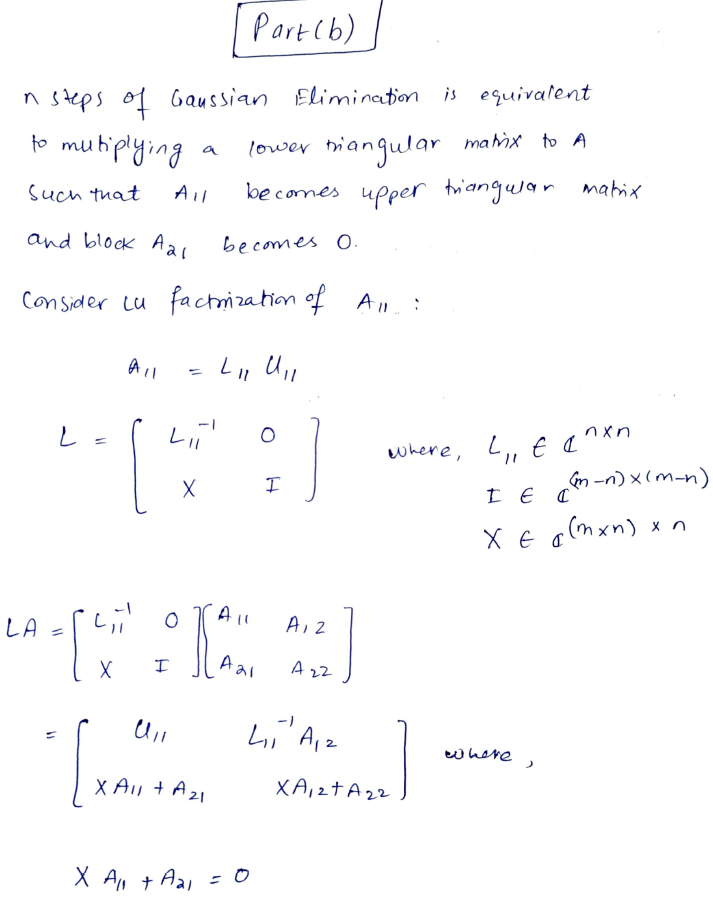 Part(b)
n steps of Gaussian Elimination is equivalent
to mutiplying a lower triangular matrix to A
Such that A₁₁ becomes upper triangular matrix
and block A₂₁ becomes 0.
Consider LU factrization of A₁₁ :
A₁₁ = L₁₁ U₁₁
L = [ L₁₁⁻¹ 0 ; X I ] where, L₁₁ ∈ ℂ^(n×n)
I ∈ ℂ^((m-n)×(m-n))
X ∈ ℂ^((m×n)×n)
LA = [ L₁₁⁻¹ 0 ; X I ] [ A₁₁ A₁₂ ; A₂₁ A₂₂ ]
= [ U₁₁ L₁₁⁻¹A₁₂ ; XA₁₁ + A₂₁ XA₁₂+A₂₂ ] where,
X A₁₁ + A₂₁ = 0